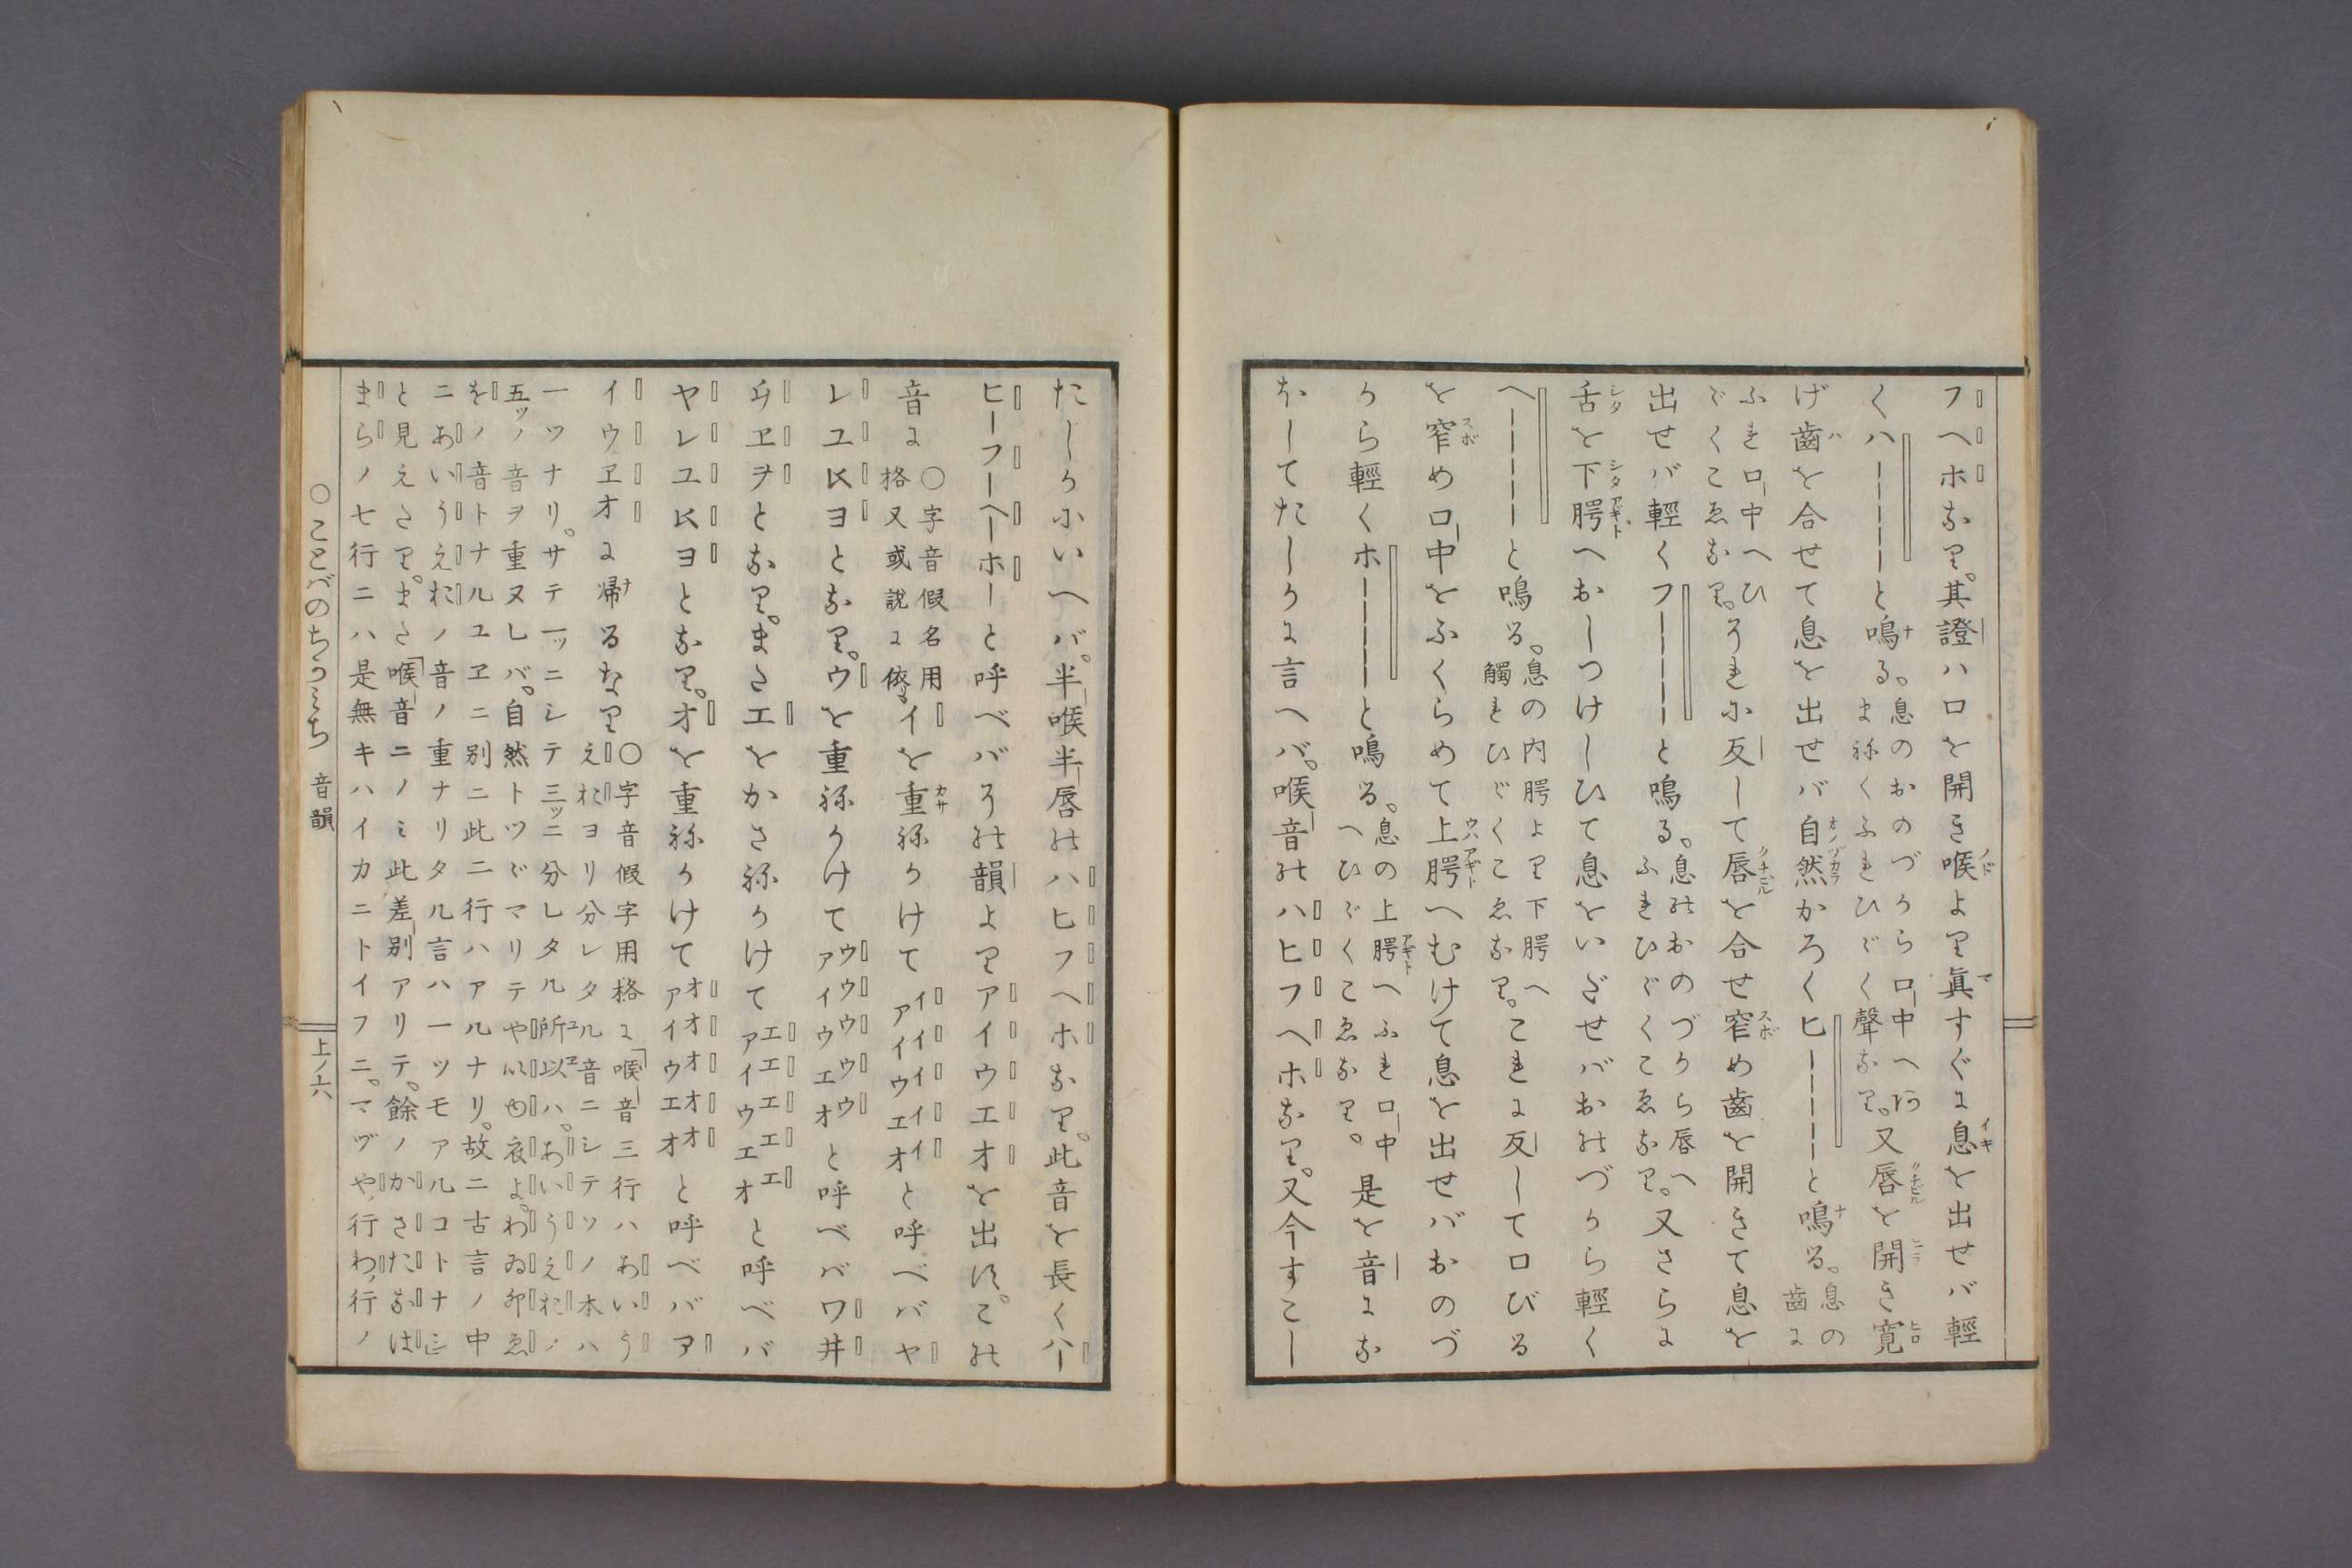 フヘホなり。其證ハ口を開き喉より眞すぐに息を出せバ輕
くハ－－－－－と鳴る。息のおのづから口中へあまねくふれひゞく聲なり。又唇を開き寛
げ齒を合せて息を出せバ自然かろくヒ－－－－－と鳴る。息の齒に
ふれ口中へひゞくこゑなり。それに反して唇を合せ窄め齒を開きて息を
出せバ輕くフ－－－－－と鳴る。息のおのづから唇へふれひゞくこゑなり。又さらに
舌を下腭へおしつけしひて息をいだせバおのづから輕く
ヘ－－－－－と鳴る。息の内腭より下腭へ觸れひゞくこゑなり。これに反して口びる
を窄め口中をふくらめて上腭へむけて息を出せバおのづ
から輕くホ－－－－－と鳴る。息の上腭へふれ口中へひゞくこゑなり。是を音にな
ほしてたしかに言へバ。喉音のハヒフヘホなり。又今すこし
たしかにいへバ。半喉半唇のハヒフヘホなり。此音を長くハー
ヒーフーヘーホーと呼べバその韻よりアイウエオを出す。この
音に〇字音假名用格又或説に依るイを重ねかけてアイイイウイエイオイと呼べバヤ
レユ𛄡ヨとなり。ウを重ねかけてウアウイウウウエウオと呼べバワ井
ヰヱヲとなり。またエをかさねかけてエアエイエウエエエオと呼べバ
ヤレユ𛄡ヨとなり。オを重ねかけてオアオイオウオエオオと呼べバア
イウヱオに帰るなり〇字音假字用格に喉音三行ハあいう
えおヨリ分レタル音ニシテソノ本ハ
一ツナリ。サテ一ッニシテ三ッニ分レタル所以ハ。あいうえおノ
五ッノ音ヲ重ヌレバ。自然トツゞマリテやいゆ衣よ。わゐ卯ゑ
をノ音トナルユヱニ別ニ此二行ハアルナリ。故ニ古言ノ中
ニあいうえおノ音ノ重ナリタル言ハ一ツモアルコトナシ
と見えたり。また喉音ニノミ此差別アリテ。餘ノかさたなは
まらノ七行ニハ是無キハイカニトイフニ。マヅや行わ行ノ
〇ことバのちかみち　音韻　上ノ六